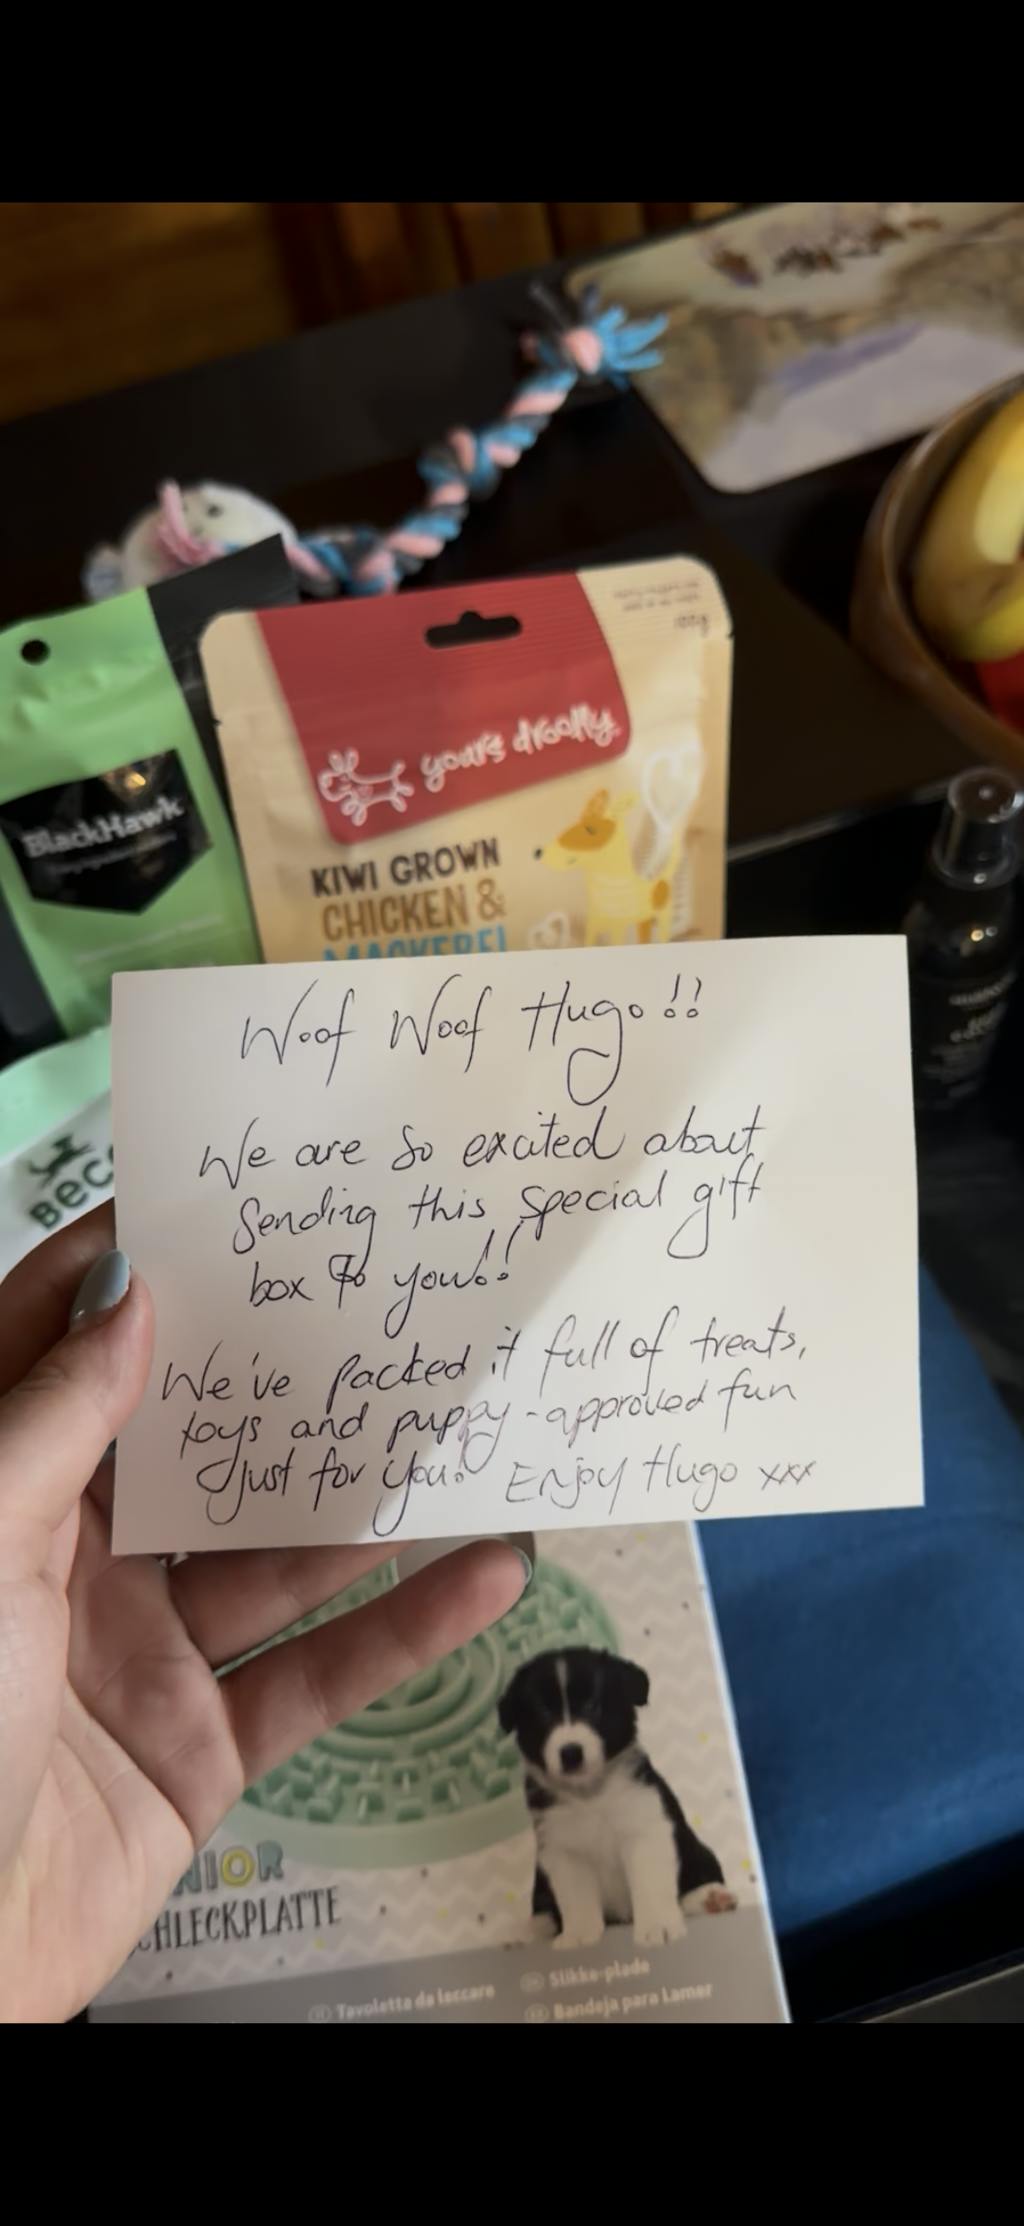 yours droolly
BlackHawk
KIWI GROWN
CHICKEN &
MACKEREL
Woof Woof Hugo!!
We are so excited about
Sending this special gift
box to you!!
We've packed it full of treats,
toys and puppy-approved fun
Just for you! Enjoy Hugo xxx
BECO
NIOR
HLECKPLATTE
Tavoletta da leccare
Slikke-plade
Bandeja para Lamer